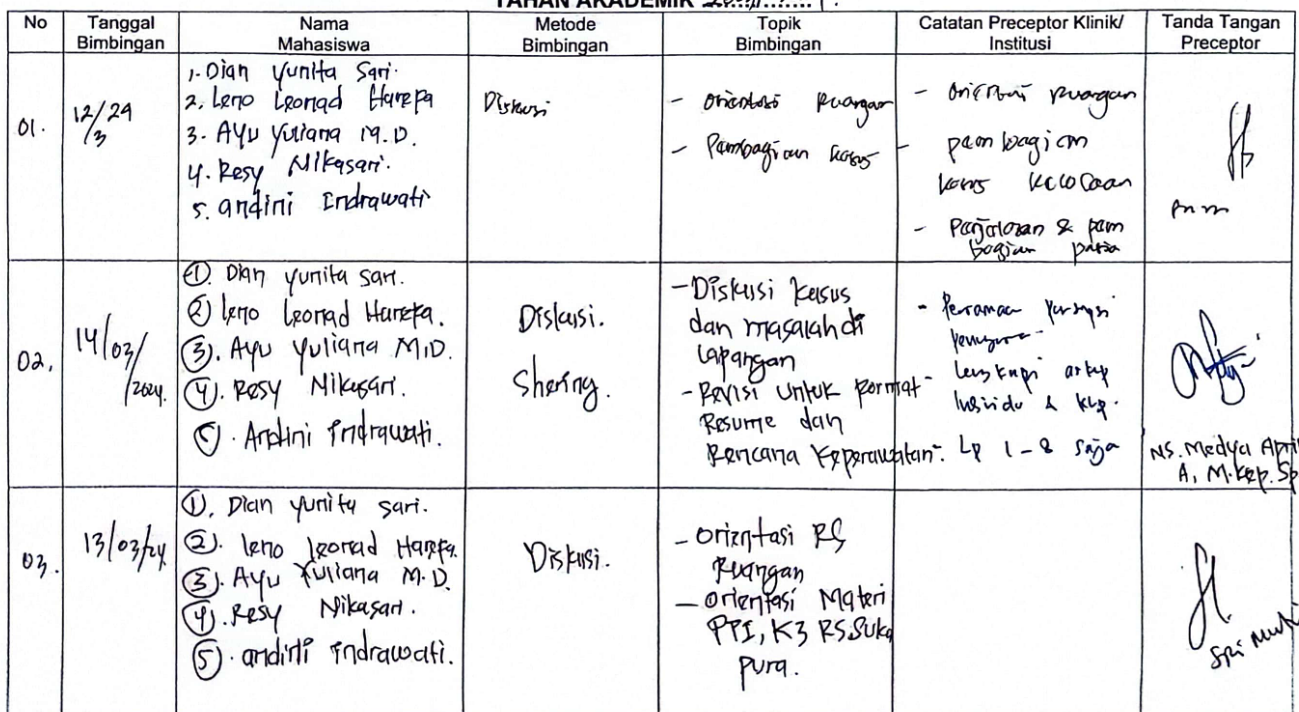 TAHAN AKADEMIK
No
Tanggal
Bimbingan
Nama
Mahasiswa
Metode
Bimbingan
Topik
Bimbingan
Catatan Preceptor Klinik/
Institusi
Tanda Tangan
Preceptor
01.
12/24
3
1. Dian Yunita Sari.
2. Leno Leonad Harefa
3. Ayu Yuliana M.D.
4. Resy Nikasari.
5. andini Indrawati
Diskusi
- orientasi Ruangan
- Pembagian kasus
- orientasi Ruangan
- pembagian
kasus kelolaan
- & pem
bagian
02.
14/03/
2024.
①. Dian yunita sari.
② leno leonad Harefa.
③. Ayu yuliana M.D.
④. Resy Nikasari.
⑤. Andini Indrawati.
Diskusi.
Shering.
- Diskusi kasus
dan masalah di
lapangan
- Revisi untuk format
Resume dan
Rencana Keperawatan.
-
- lengkapi askep
Individu & klp.
- LP 1-8 saja
NS. Medya Apri
A, M.Kep. Sp
03.
13/03/24
①. Dian yunita sari.
②. leno leonad Harefa.
③. Ayu Yuliana M.D.
④. Resy Nikasari.
⑤. andini Indrawati.
Diskusi.
- orientasi RS
Ruangan
- orientasi Materi
PPI, K3 RS.Suka
pura.
Sri